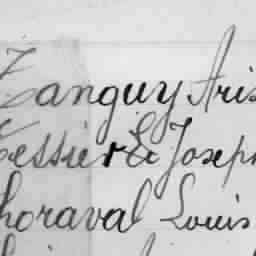 Zanguy Aris
Tessier & Joseph
horaval Louis